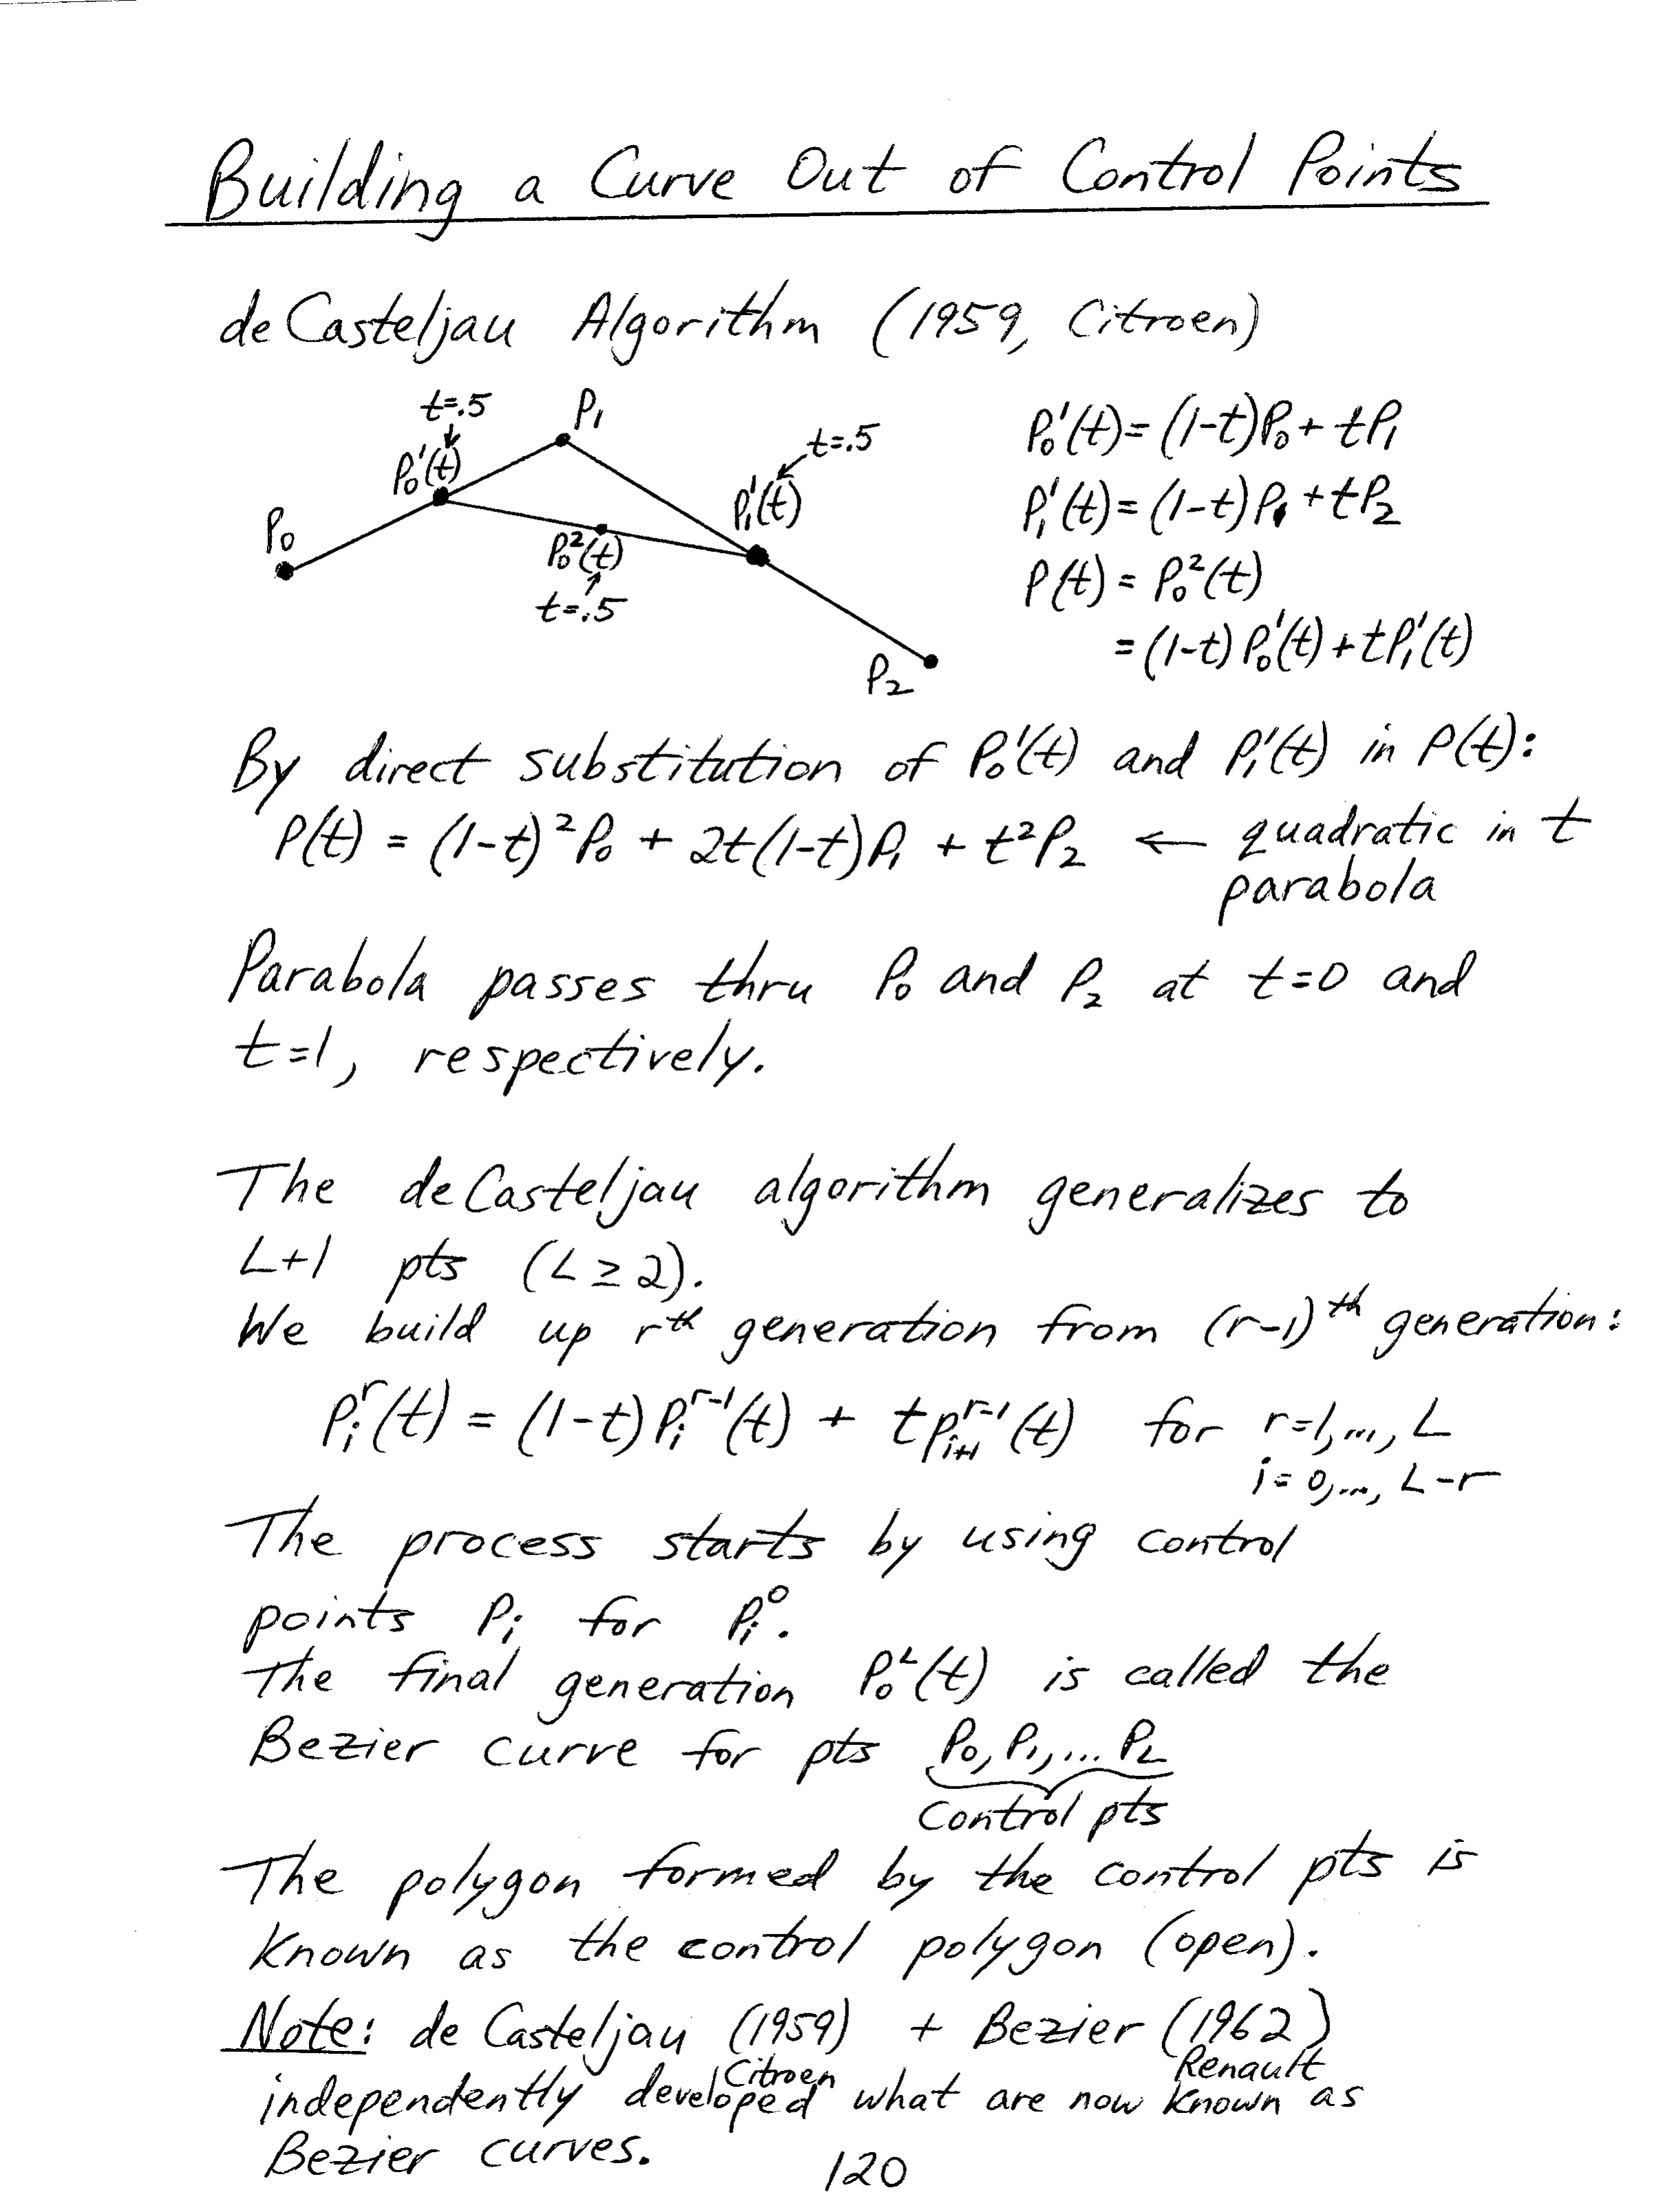 Building a Curve Out of Control Points
de Casteljau Algorithm (1959, Citroen)
t=.5
P₁
t=.5
P₀¹(t)
P₁¹(t)
P₀
P₀²(t)
t=.5
P₂
P₀¹(t)= (1-t)P₀ + tP₁
P₁¹(t)= (1-t)P₁ + tP₂
P(t) = P₀²(t)
= (1-t) P₀¹(t) + tP₁¹(t)
By direct substitution of P₀¹(t) and P₁¹(t) in P(t):
P(t) = (1-t)²P₀ + 2t(1-t)P₁ + t²P₂ ← quadratic in t
parabola
Parabola passes thru P₀ and P₂ at t=0 and
t=1, respectively.
The de Casteljau algorithm generalizes to
L+1 pts (L ≥ 2).
We build up rᵗʰ generation from (r-1)ᵗʰ generation:
Pᵢʳ(t) = (1-t) Pᵢʳ⁻¹(t) + t Pᵢ₊₁ʳ⁻¹(t) for r=1,..., L
i= 0,..., L-r
The process starts by using control
points Pᵢ for Pᵢ⁰.
The final generation P₀ᴸ(t) is called the
Bezier curve for pts P₀, P₁,... P_L
Control pts
The polygon formed by the control pts is
known as the control polygon (open).
Note: de Casteljau (1959) + Bezier (1962)
Citroen Renault
independently developed what are now known as
Bezier curves.
120